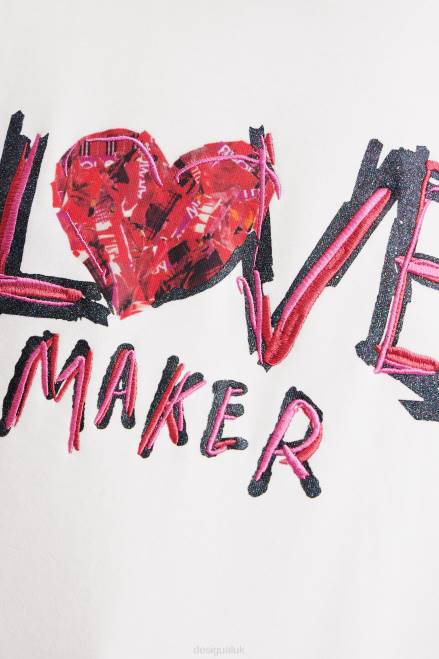 LOVE
MAKER
desigualuk